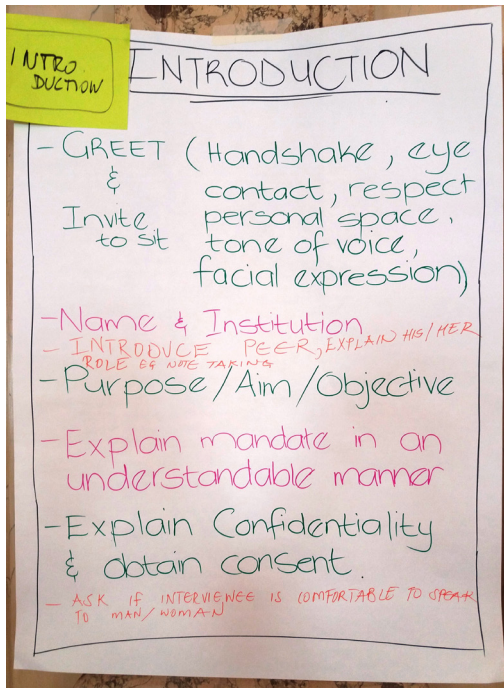 INTRO
DUCTION
INTRODUCTION
- GREET (Handshake, eye
& contact, respect
Invite personal space,
to sit tone of voice,
facial expression)
- Name & Institution
- INTRODUCE PEER, EXPLAIN HIS/HER
ROLE EG NOTE TAKING
- Purpose/Aim/Objective
- Explain mandate in an
understandable manner
- Explain Confidentiality
& obtain consent.
- ASK IF INTERVIEWEE IS COMFORTABLE TO SPEAK
TO MAN/WOMAN